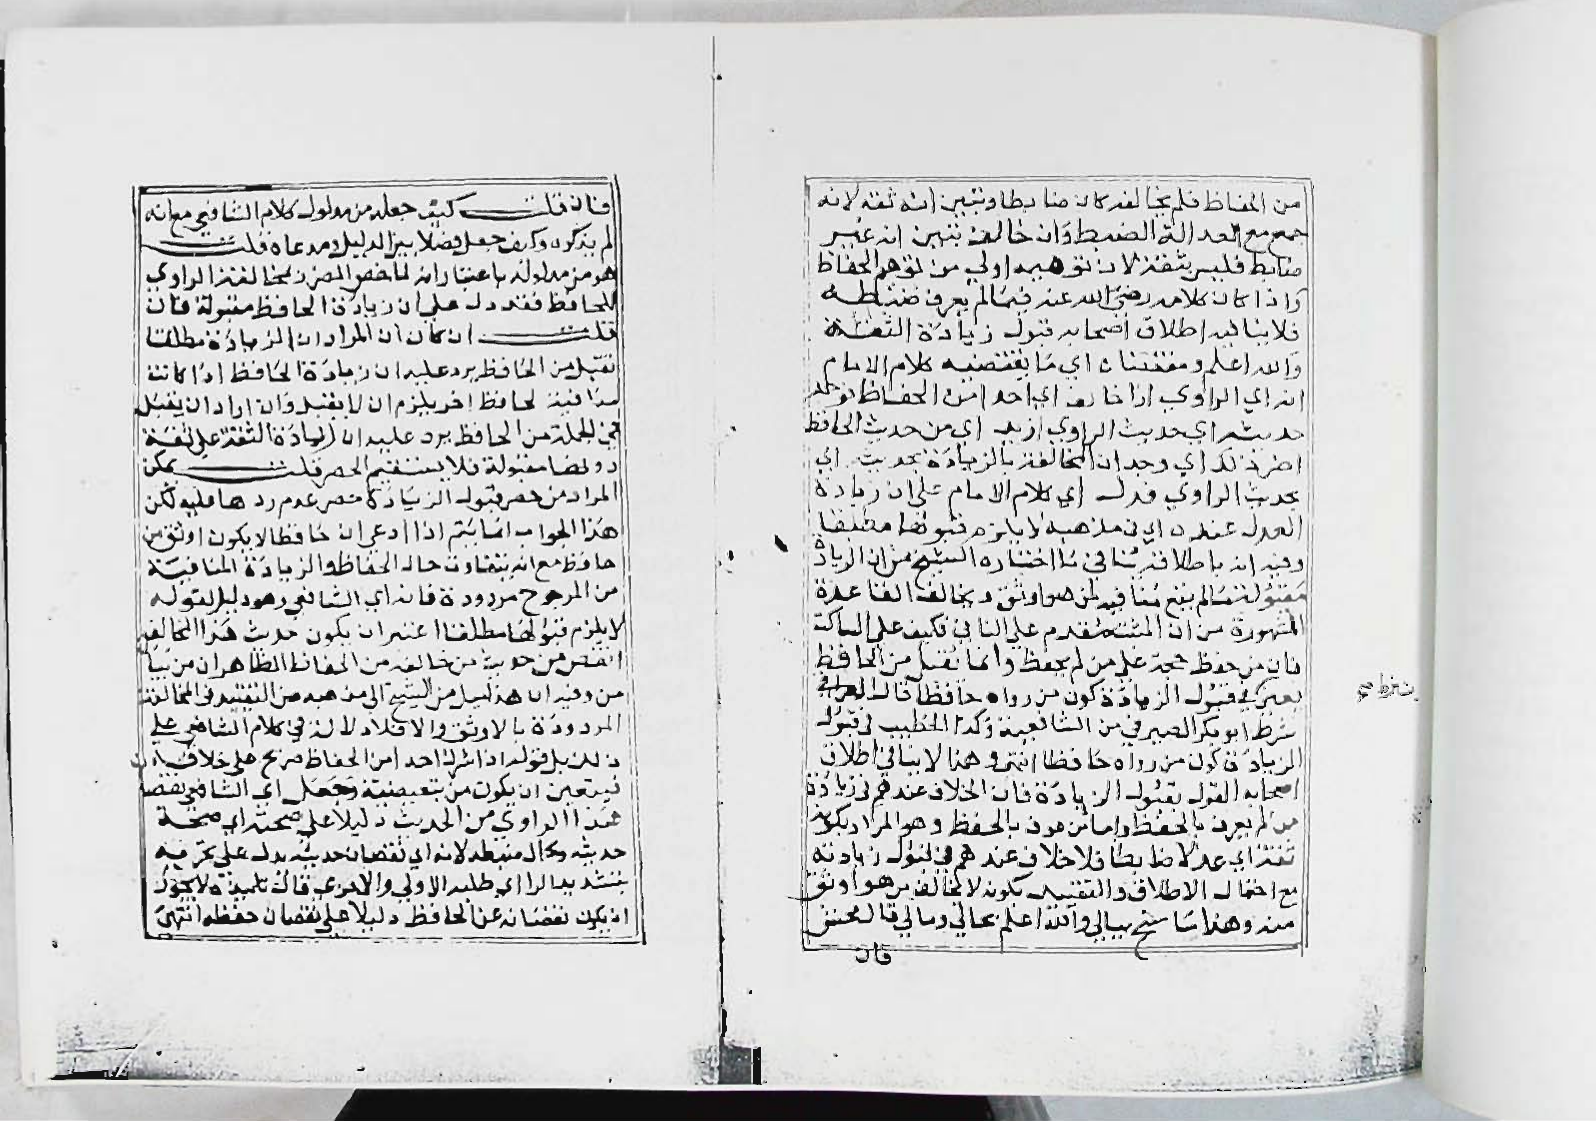 من الحفاظ فلم يخالفه كان ضابطا وتبين انه ثقة لانه
جمع مع العدالة الضبط وان خالف تبين انه غير
ضابط فليس بثقة لان توهيمه اولى من توهم الحفاظ
واذا كان كلامه رضي الله عنه فيما لم يعرف ضبطه
فلا ينافيه اطلاق اصحابه قبول زيادة الثقة
والله اعلم ومقتضاه اي ما يقتضيه كلام الامام
انه اي الراوي اذا خالف اي احدا من الحفاظ فوجد
حديثه اي حديث الراوي ازيد اي من حديث الحافظ
اضر ذلك اي وجدان المخالفة بالزيادة بحديثه اي
بحديث الراوي فدل اي كلام الامام على ان زيادة
العدل عنده اي في مذهبه لا يلزم قبولها مطلقا
وفيه انه باطلاقه ينافي ما اختاره الشيخ من ان الزيادة
مقبولة ما لم يقع منافية لمن هو اوثق ويخالف القاعدة
المشهورة من ان المثبت مقدم على النافي فكيف على الساكت
فان من حفظ حجة على من لم يحفظ وانما تقبل من الحافظ
يعتبر في قبول الزيادة كون من رواه حافظا قال العراقي
شرط ابو بكر الصيرفي من الشافعية وكذا الخطيب في قبول
الزيادة كون من رواه حافظا انتهى وهذا لا ينافي اطلاق
اصحابه القول بقبول الزيادة فان الخلاف عندهم في زيادة
من لم يعرف بالحفظ واما من عرف بالحفظ وهو المراد بكونه
ثقة اي عدلا ضابطا فلا خلاف عندهم في قبول زيادته
مع احتمال الاطلاق والتقييد بكونه لا يخالف من هو اوثق
منه وهذا ما سنح ببالي والله اعلم بحالي ومالي قال محشي
فان
فان قلت كيف جعله من مدلول كلام الشافعي مع انه
لم يذكره وكيف جعل فصلا بين الدليل ومدعاه قلت
هو من مدلوله باعتبار انه لما خص المضر بمخالفة الراوي
للحافظ فقد دل على ان زيادة الحافظ مقبولة فان
قلت ان كان المراد ان الزيادة مطلقا
تقبل من الحافظ يرد عليه ان زيادة الحافظ اذا كانت
منافية لحافظ اخر يلزم ان لا يقبل وان اراد ان يقبل
في الجملة من الحافظ يرد عليه ان زيادة الثقة على ثقة
دونها مقبولة فلا يستقيم الحصر قلت يمكن
المراد من حصر قبول الزيادة حصر عدم ردها فليه لكن
هذا الجواب انما يتم اذا ادعى ان حافظا لا يكون اوثق من
حافظ مع انه يتفاوت حال الحفاظ والزيادة المنافية
من المرجوح مردودة فانه اي الشافعي وهو دليل لقوله
لا يلزم قبولها مطلقا اعتبر ان يكون حديث هذا المخالف
انقص من حديث من خالفه من الحفاظ الظاهر ان من بيا
من وفيه ان هذا ميل من الشيخ الى مذهبه من التقييد في المخالفة
المردودة بالاوثق والا فلا دلالة في كلام الشافعي على
ذلك بل قوله اذا شرك احدا من الحفاظ صريح على خلاف
فيتعين ان يكون من تبعيضية وجعل اي الشافعي نقصا
هذا الراوي من الحديث دليلا على صحته اي صحة
حديثه وكمال ضبطه لانه اي نقصان حديثه يدل على تحريه
بتشديد الرا اي طلبه الاولى والاحرى قال تلميذه لا يجوز
ان يكون نقصانه عن الحافظ دليلا على نقصان حفظه انتهى